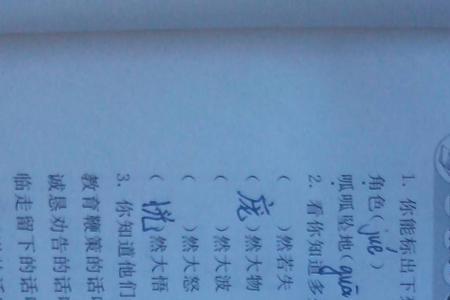 1. 你能标出下
角色(jué)
呱呱坠地(guā
2. 看你知道多
( )然若失
(庞)然大物
( )然大波
( )然大怒
(恍)然大悟
3. 你知道他们
教育鞭策的话
诚恳劝告的话
临走留下的话